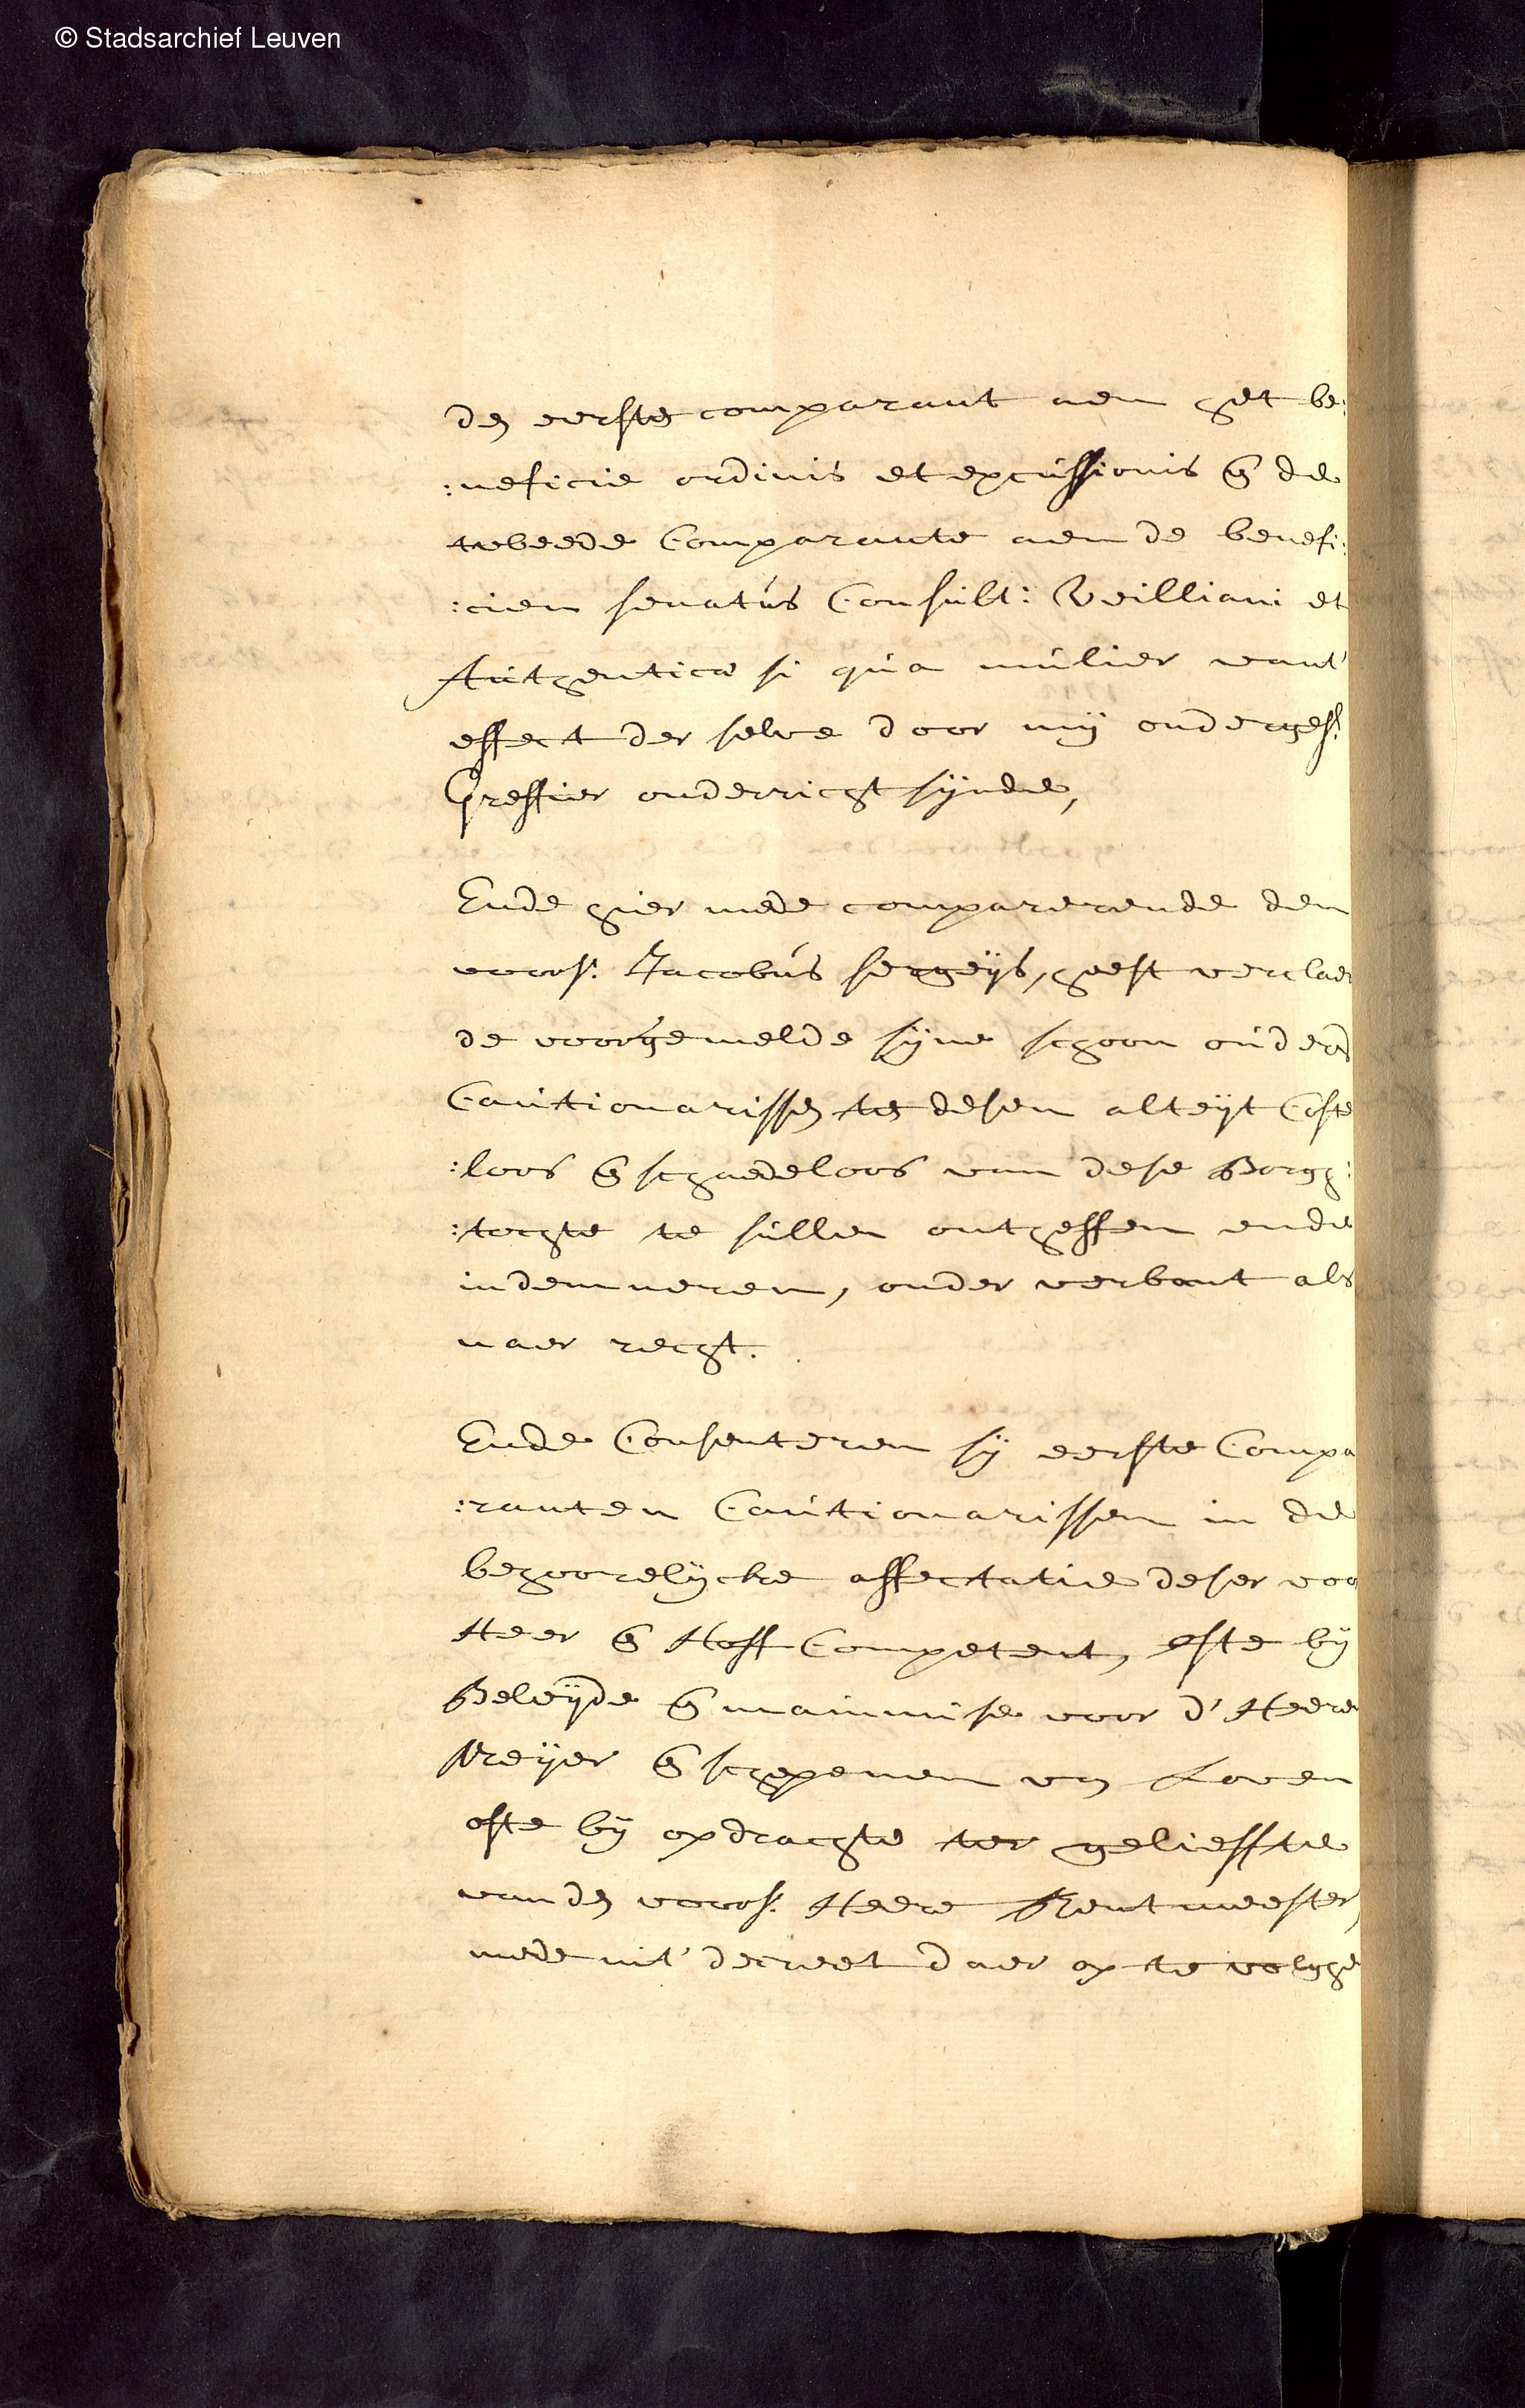 © Stadsarchief Leuven
den eersten comparant aen het be:
:neficie ordinis et excussionis en de
tweede Comparante aen de benefi:
:cien senatus Consult: Veilliani et
Authentica si qua mulier vant'
effect der selve door mij onderges.
Greffier onderricht sijnde,
Ende hier mede comparerende den
voors. Jacobus sergeijs, heeft verclaer
de voorgemelde sijne schoon ouders
Cautionarissen ten desen alteijt Coste
:loos en schaedeloos van dese Borgh:
:tochte te sullen ontheffen ende
indemneren, onder verbant als
naer recht.
Ende Consenteren sij eerste Compa
:ranten Cautionarissen in de
behoorelijcke affectatie deser voo
Heer en Hoff Competent, ofte bij
Beleijde en mainmise voor d' Heere
Meijer en schepenen van Loven
ofte bij opdrachte ter gelieffte
vanden voors. Heere Rentmeester,
mede uit' decreet daer op te volghe